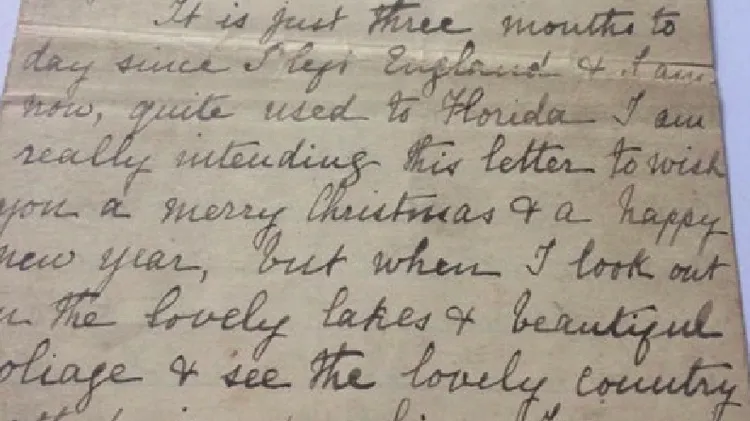 It is just three months to
day since I left England & I am
now, quite used to Florida I am
really intending this letter to wish
you a merry Christmas & a happy
new year, but when I look out
the lovely lakes & beautiful
oliage & see the lovely country